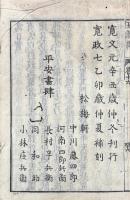 寛文元辛丑歳仲冬刊行
寛政七乙卯歳仲夏補刻
松梅軒
平安書肆
中川藤四郎
河南四郎兵衛
長村半兵衛
同和助
小林庄兵衛